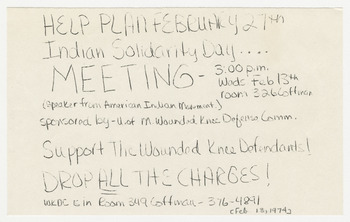 HELP PLAN FEBRUARY 27th
Indian Solidarity Day....
MEETING - 3:00 p.m.
Weds Feb 13th
room 326 Coffman
(speaker from American Indian Movement)
sponsored by - U. of M. Wounded Knee Defense Comm.
Support The Wounded Knee Defendants!
DROP ALL THE CHARGES!
WKDC is in Room 349 Coffman - 376-4841
(Feb 13, 1974)